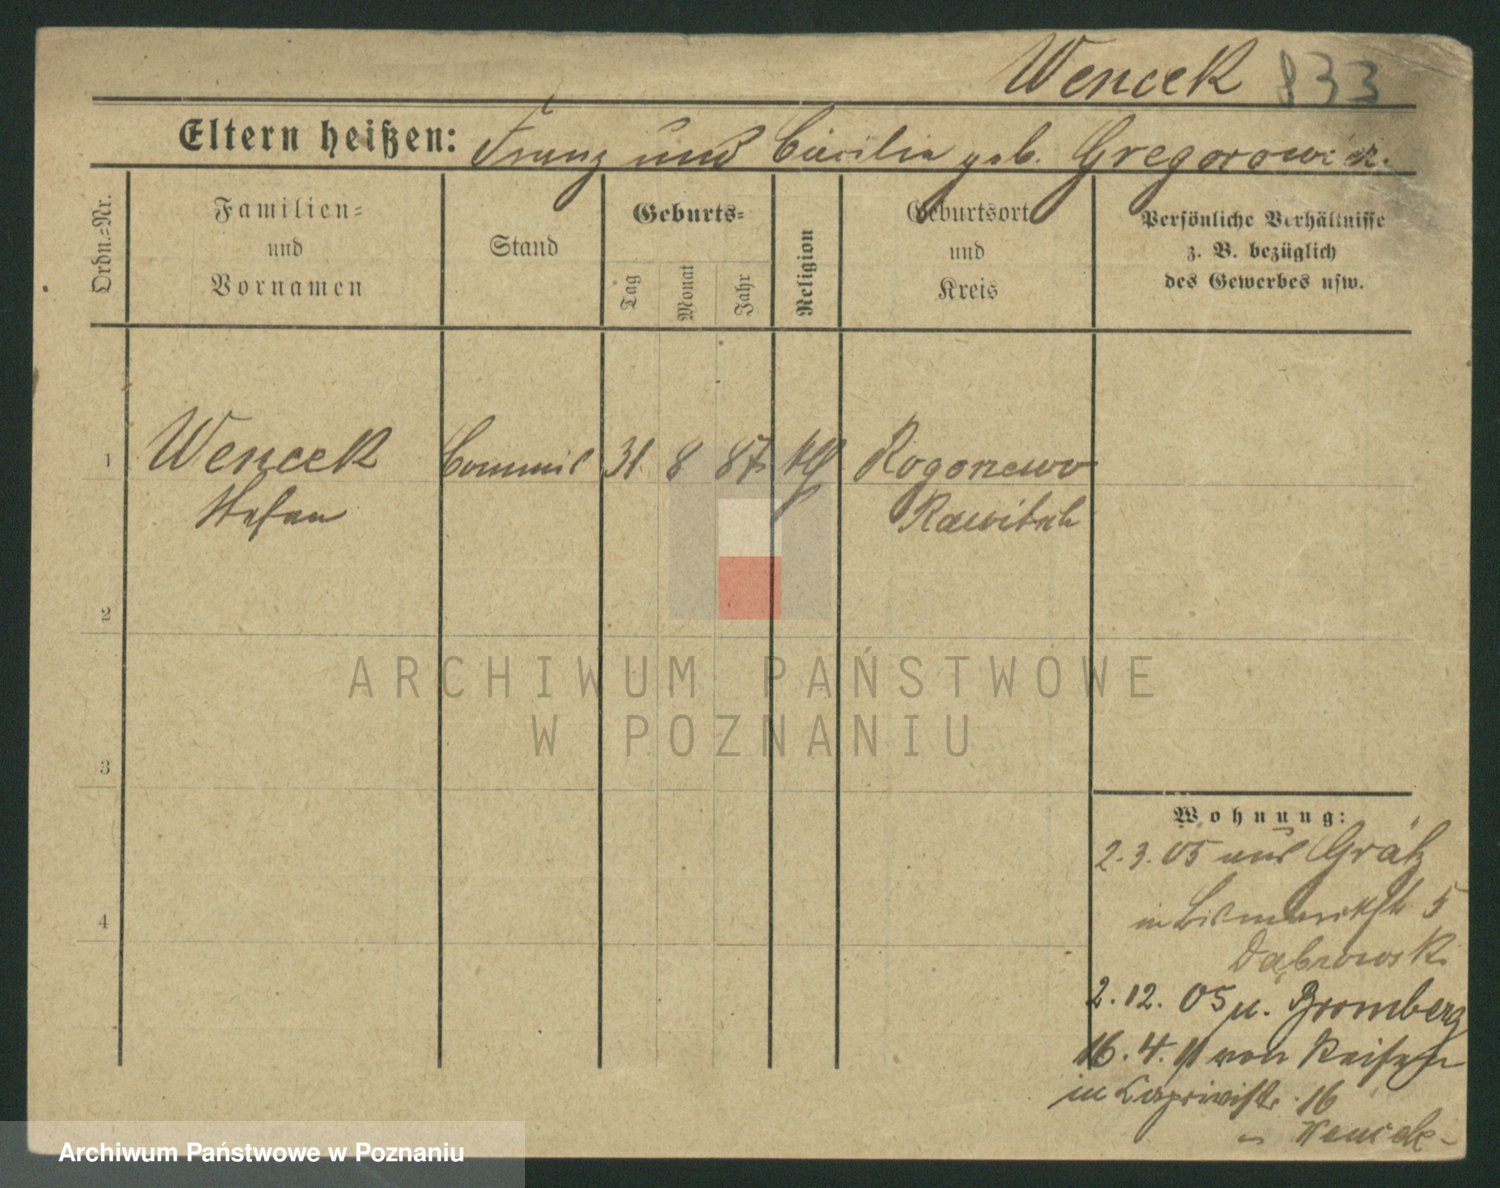 Wencek 833
Eltern heißen: Franz und Cäcilia geb. Gregorowicz.
Ordn.-Nr.
Familien-
und
Vornamen
Stand
Geburts-
Tag
Monat
Jahr
Religion
Geburtsort
und
Kreis
Persönliche Verhältnisse
z. B. bezüglich
des Gewerbes usw.
1 Wencek Commis 31 8 87 kth Rogozewo
Stefan Rawitsch
2
3
4
Wohnung:
2.3.05 aus Grätz
in Bismarckstr 5
Dąbrowski
2.12.05 n. Bromberg
16.4.11 von Reisen
in Caprivistr. 16
Wencek
ARCHIWUM PAŃSTWOWE
W POZNANIU
Archiwum Państwowe w Poznaniu